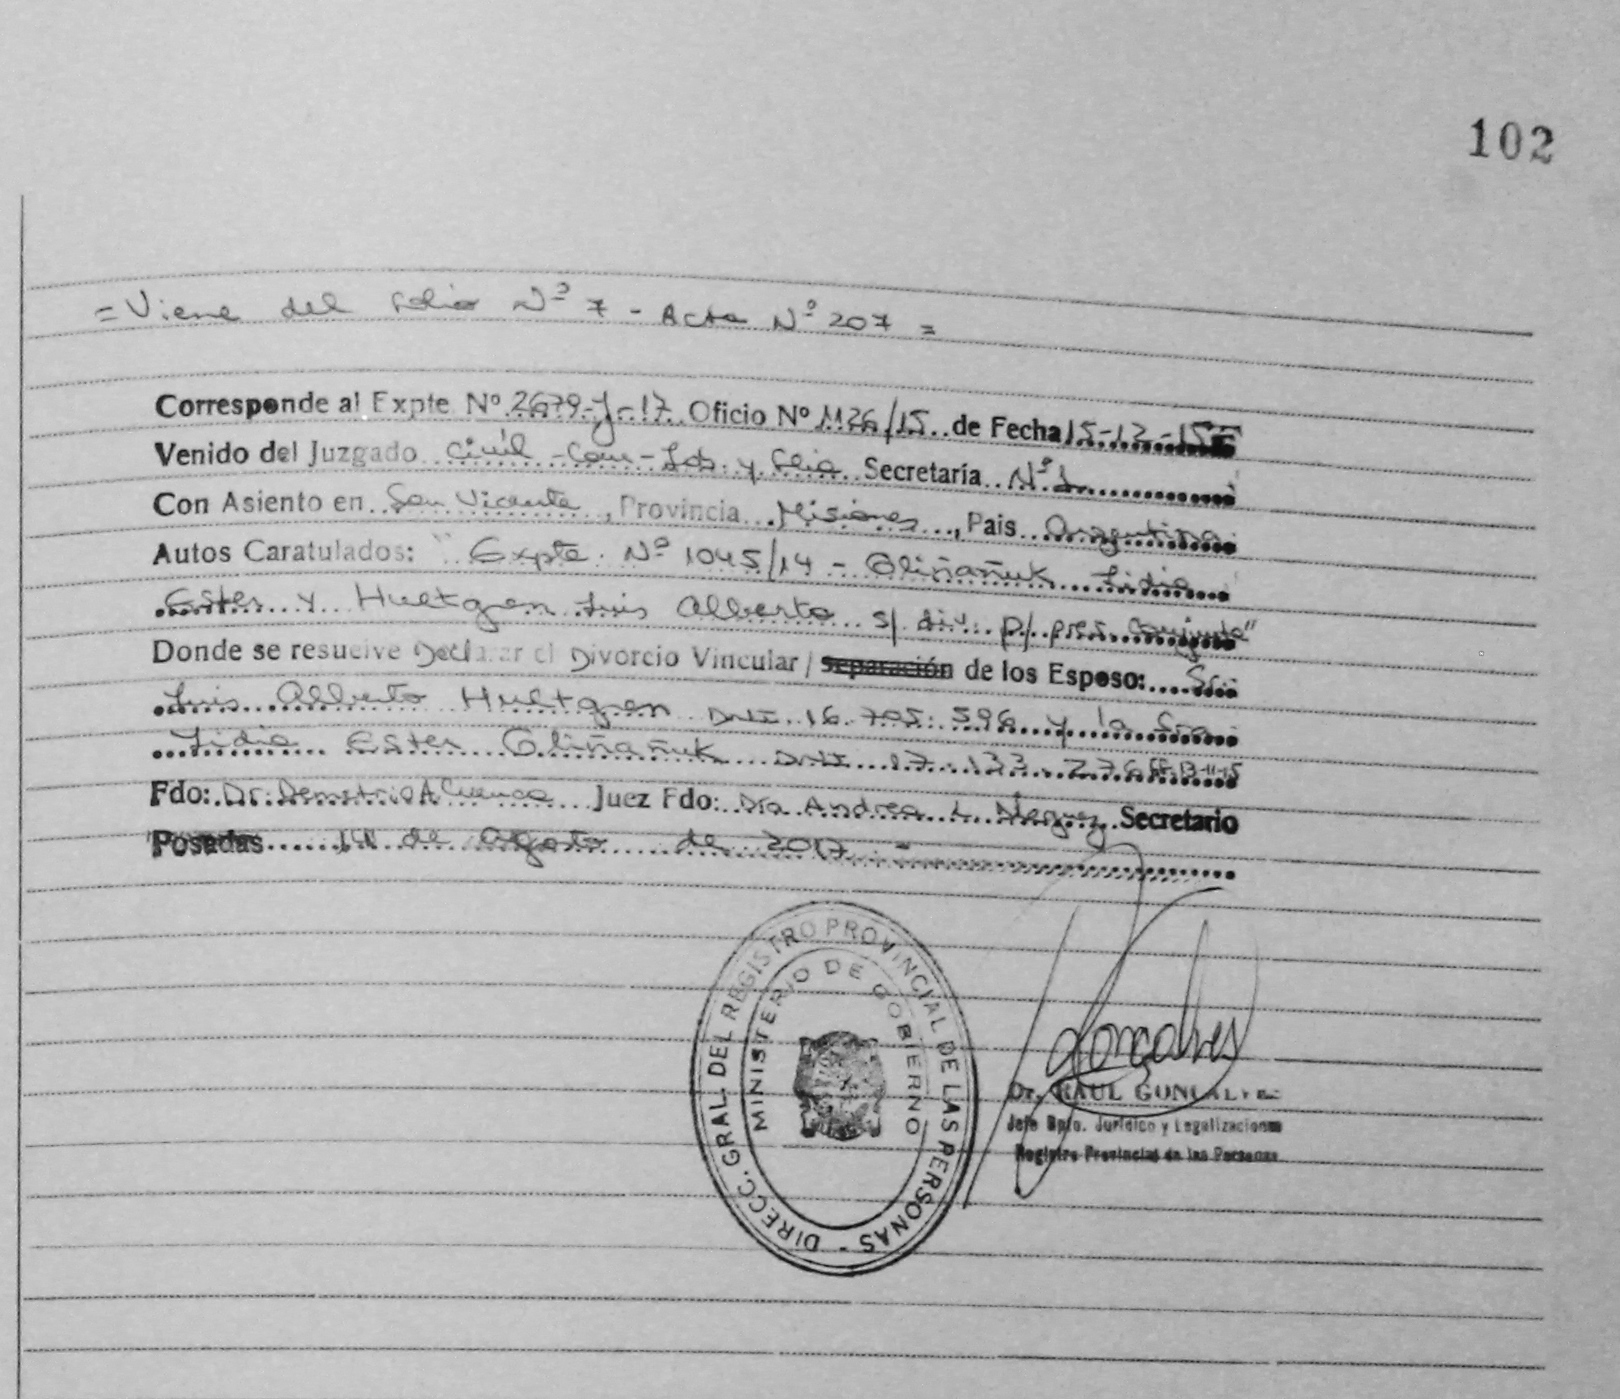 102
= Viene del folio Nº 7 - Acta Nº 207 =
Corresponde al Expte Nº 2679-J-17 Oficio Nº 1126/15 de Fecha 15-12-15
Venido del Juzgado Civil - Com - Lab. y Flia Secretaría Nº 1
Con Asiento en San Vicente, Provincia Misiones, Pais Argentina
Autos Caratulados: "Expte. Nº 1045/14 - Oliñañuk Lidia
Ester y Hultgren Luis Alberto s/ div. p/ pres. conjunta"
Donde se resuelve Declarar el Divorcio Vincular / separación de los Esposo: Sr.
Luis Alberto Hultgren DNI 16.705.596 y la Sra
Lidia Ester Oliñañuk DNI 17.133.276 FF. 13-11-15
Fdo: Dr. Demetrio A Cuenca Juez Fdo: Dra Andrea L. Secretario
Posadas 14 de Agosto de 2017 -
DIRECC. GRAL. DEL REGISTRO PROVINCIAL DE LAS PERSONAS -
MINISTERIO DE GOBIERNO
Dr. RAUL GONCALVES
Jefe Dpto. Jurídico y Legalizaciones
Registro Provincial de las Personas